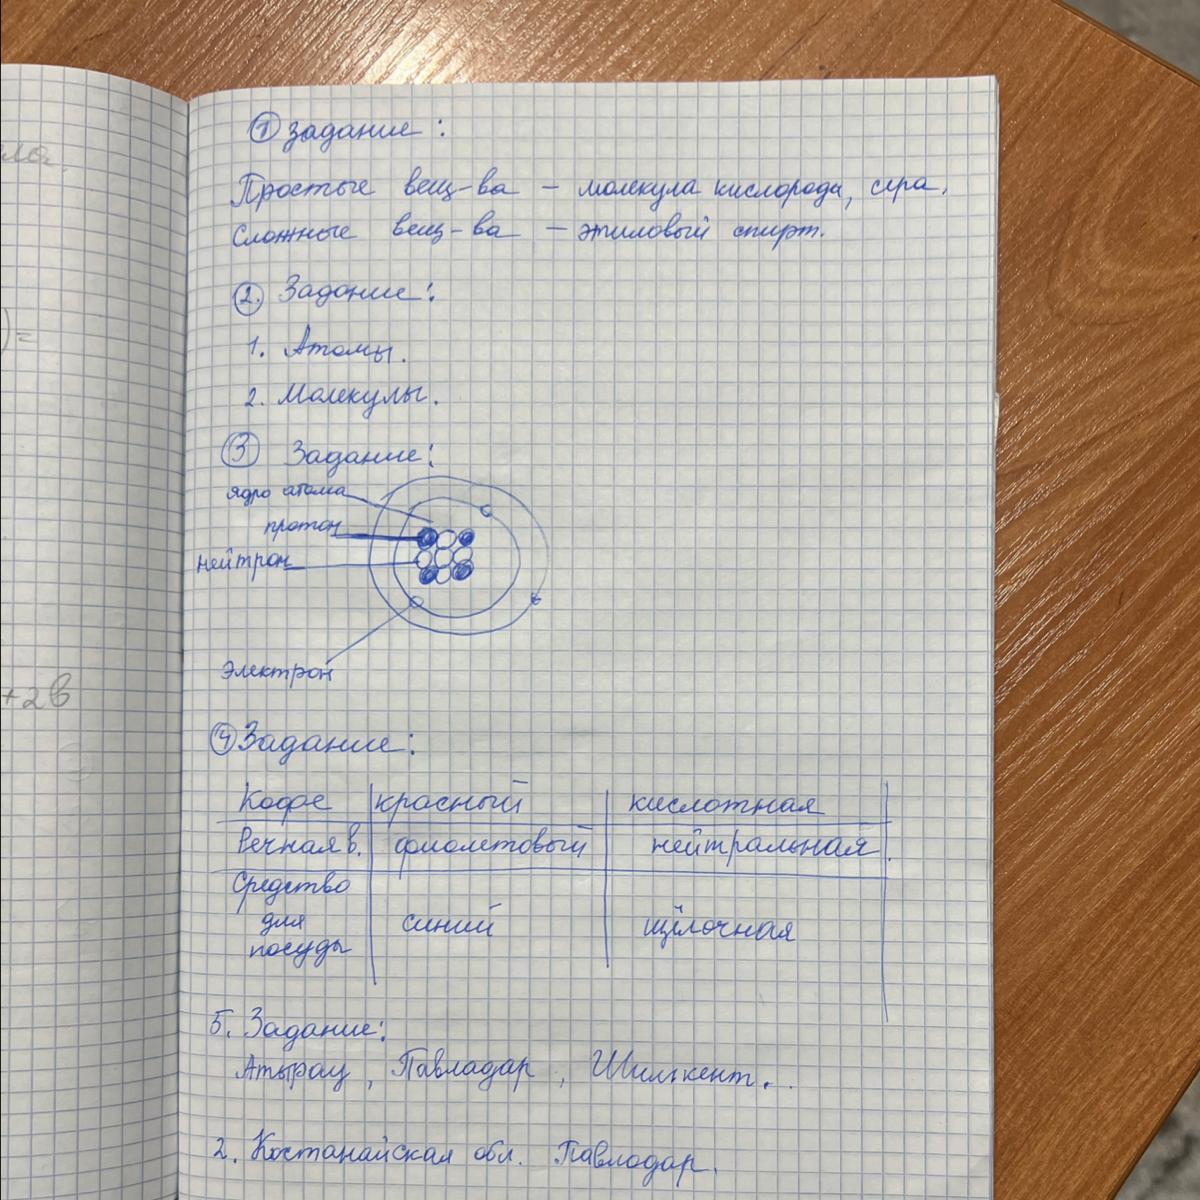 ① задание:
Простые вещ-ва – молекула кислорода, сера.
Сложные вещ-ва – этиловый спирт.
②. Задание:
1. Атомы.
2. Молекулы.
③ Задание:
ядро атома
протон
нейтрон
электрон
④ Задание:
Кофе красный кислотная
Речная в. фиолетовый нейтральная.
Средство
для синий щёлочная
посуды
5. Задание:
Атырау, Павлодар, Шимкент.
2. Костанайская обл. Павлодар.
)=
+2в